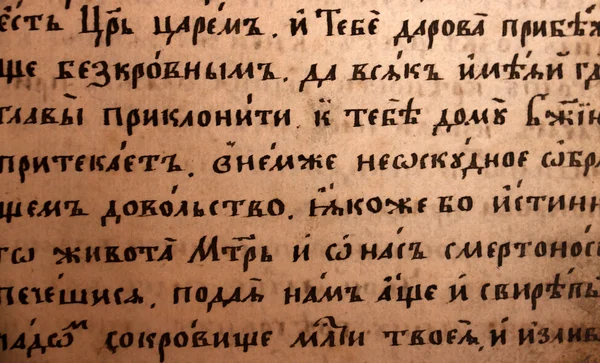 є҆́сть Цр҃ь царе́мъ. и҆ Тебѣ̀ дарова̀ прибѣ́ж
ще безкро́внымъ. да всѧ́къ и҆мѣ́ѧй гд
главы̀ приклони́ти. к̾ тебѣ̀ дому̀ бж҃їю
притека́етъ. в̾не́мже неѡскꙋ́дное ѡ҆бра
щемъ дово́льство. ꙗ҆́коже бо и҆́стинн
гѡ живота̀ Мт҃рь и҆ ѡ҆ на́съ смертоно́с
пече́шисѧ. пода́й на́мъ а҆́ще и҆ свирѣ́пы
сокро́вище млⷭ҇ти твоеѧ̀, и҆ излив